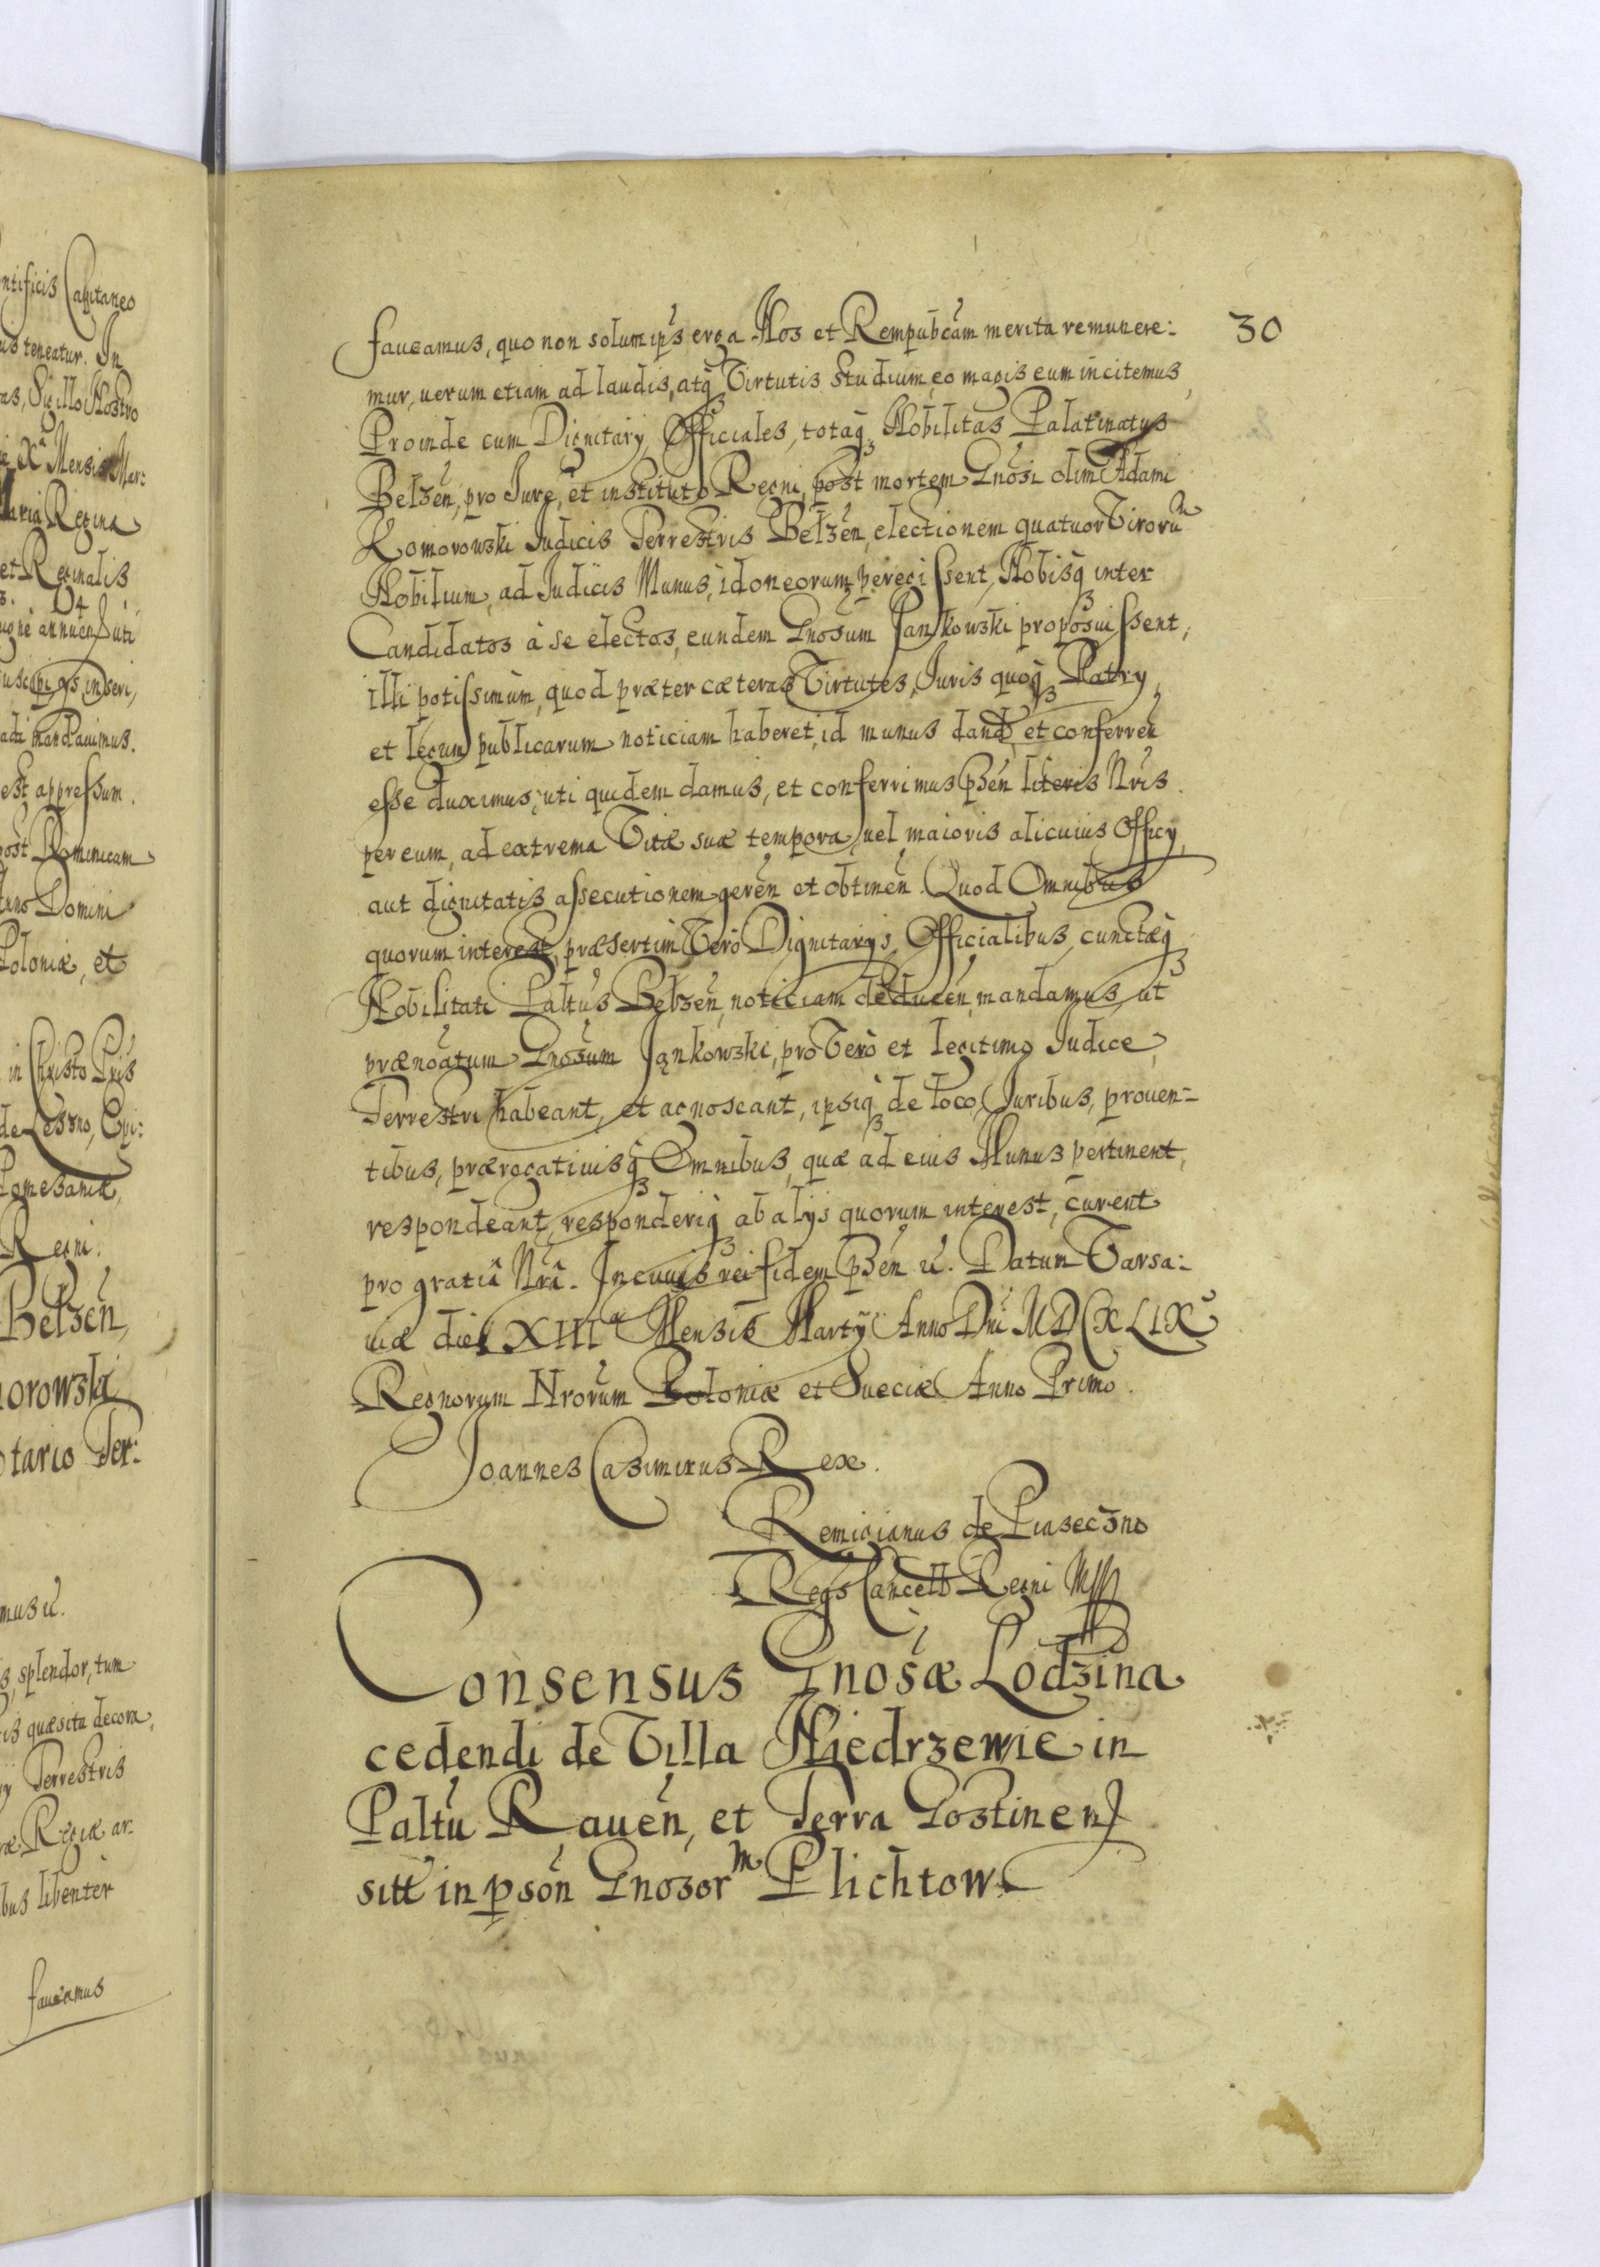 ntificis Capitaneo
us teneatur. In
as, Sigillo Nostro
Mensis Mar:
Maria Regina
et Reginalis
annuen Suti
adi mandauimus.
est appressum.
post Dominicam
Anno Domini
Poloniæ, et
in Christo Pris
de Leszno, Epi:
Pomesaniæ,
Regni.
Belzeń,
morowski
otario Ter:
mus ū.
s, splendor, tum
is quæsita decora,
ij Terrestris
ræ Regiæ ar-
bus libenter
faueamus
30
faueamus, quo non solum ip̄s erga Nos et Rempubcām merita remunere:
mur, uerum etiam ad laudis, atq̨ Virtutis studium eo magis eum incitemus,
Proinde cum Dignitarij, Officiales, totaq̨ Nobilitas Palatinatus
Belzeń, pro Iure, et instituto Regni, post mortem Gnosi olim Adami
Komorowski Iudicis Terrestris Belzeń, electionem quatuor Virorum
Nobilium, ad Iudicis Munus, idoneorum peregissent, Nobisq̨ inter
Candidatos à se electos, eundem Gnosum Jankowski proposuissent,
illi potissimùm, quod præter cæteras Virtutes, Iuris quoq̨ Patrij,
et legum publicarum noticiam haberet, id munus dand̄, et conferreń
esse duximus, uti quidem damus, et conferrimus p̄sen̄ literis Nr̄is.
per eum, ad extrema Vitæ suæ tempora, uel maioris alicuius Officij,
aut dignitatis assecutionem gereń et obtineń. Quod Omnibus
quorum interest, præsertim Verò Dignitarijs, Officialibus, cunctæq̨
Nobilitati Paltūs Belzeń, noticiam deduceń, mandamus, ut
prænōatum Gnosum Jąnkowski, pro Vero et legitimo Iudice
Terrestri habeant, et agnoscant, ipsiq̨ de loco, Iuribus, prouen-
tibus, prærogatiuisq̨ Omnibus, quæ ad eius Munus pertinent,
respondeant, responderiq̨ ab alijs quorum interest, curent
pro gratiâ Nr̄â. In cuius rei fidem p̄sen̄ ū. Datum Varsa:
uiæ die XIIIa Mensis Martij Anno Dn̄i MDCXLIX
Regnorum Nrorum Poloniæ et Sueciæ Anno Primo.
Joannes Casimirus Rex.
Remigianus de Piaseczno
Regs Cancell Regni Mpp
Consensus Gnosæ Lodzina
cedendi de Villa Niedrzewie in
Paltu Raueń, et Terra Gostinen
sitt in p̱són Gnosorm Plichtow